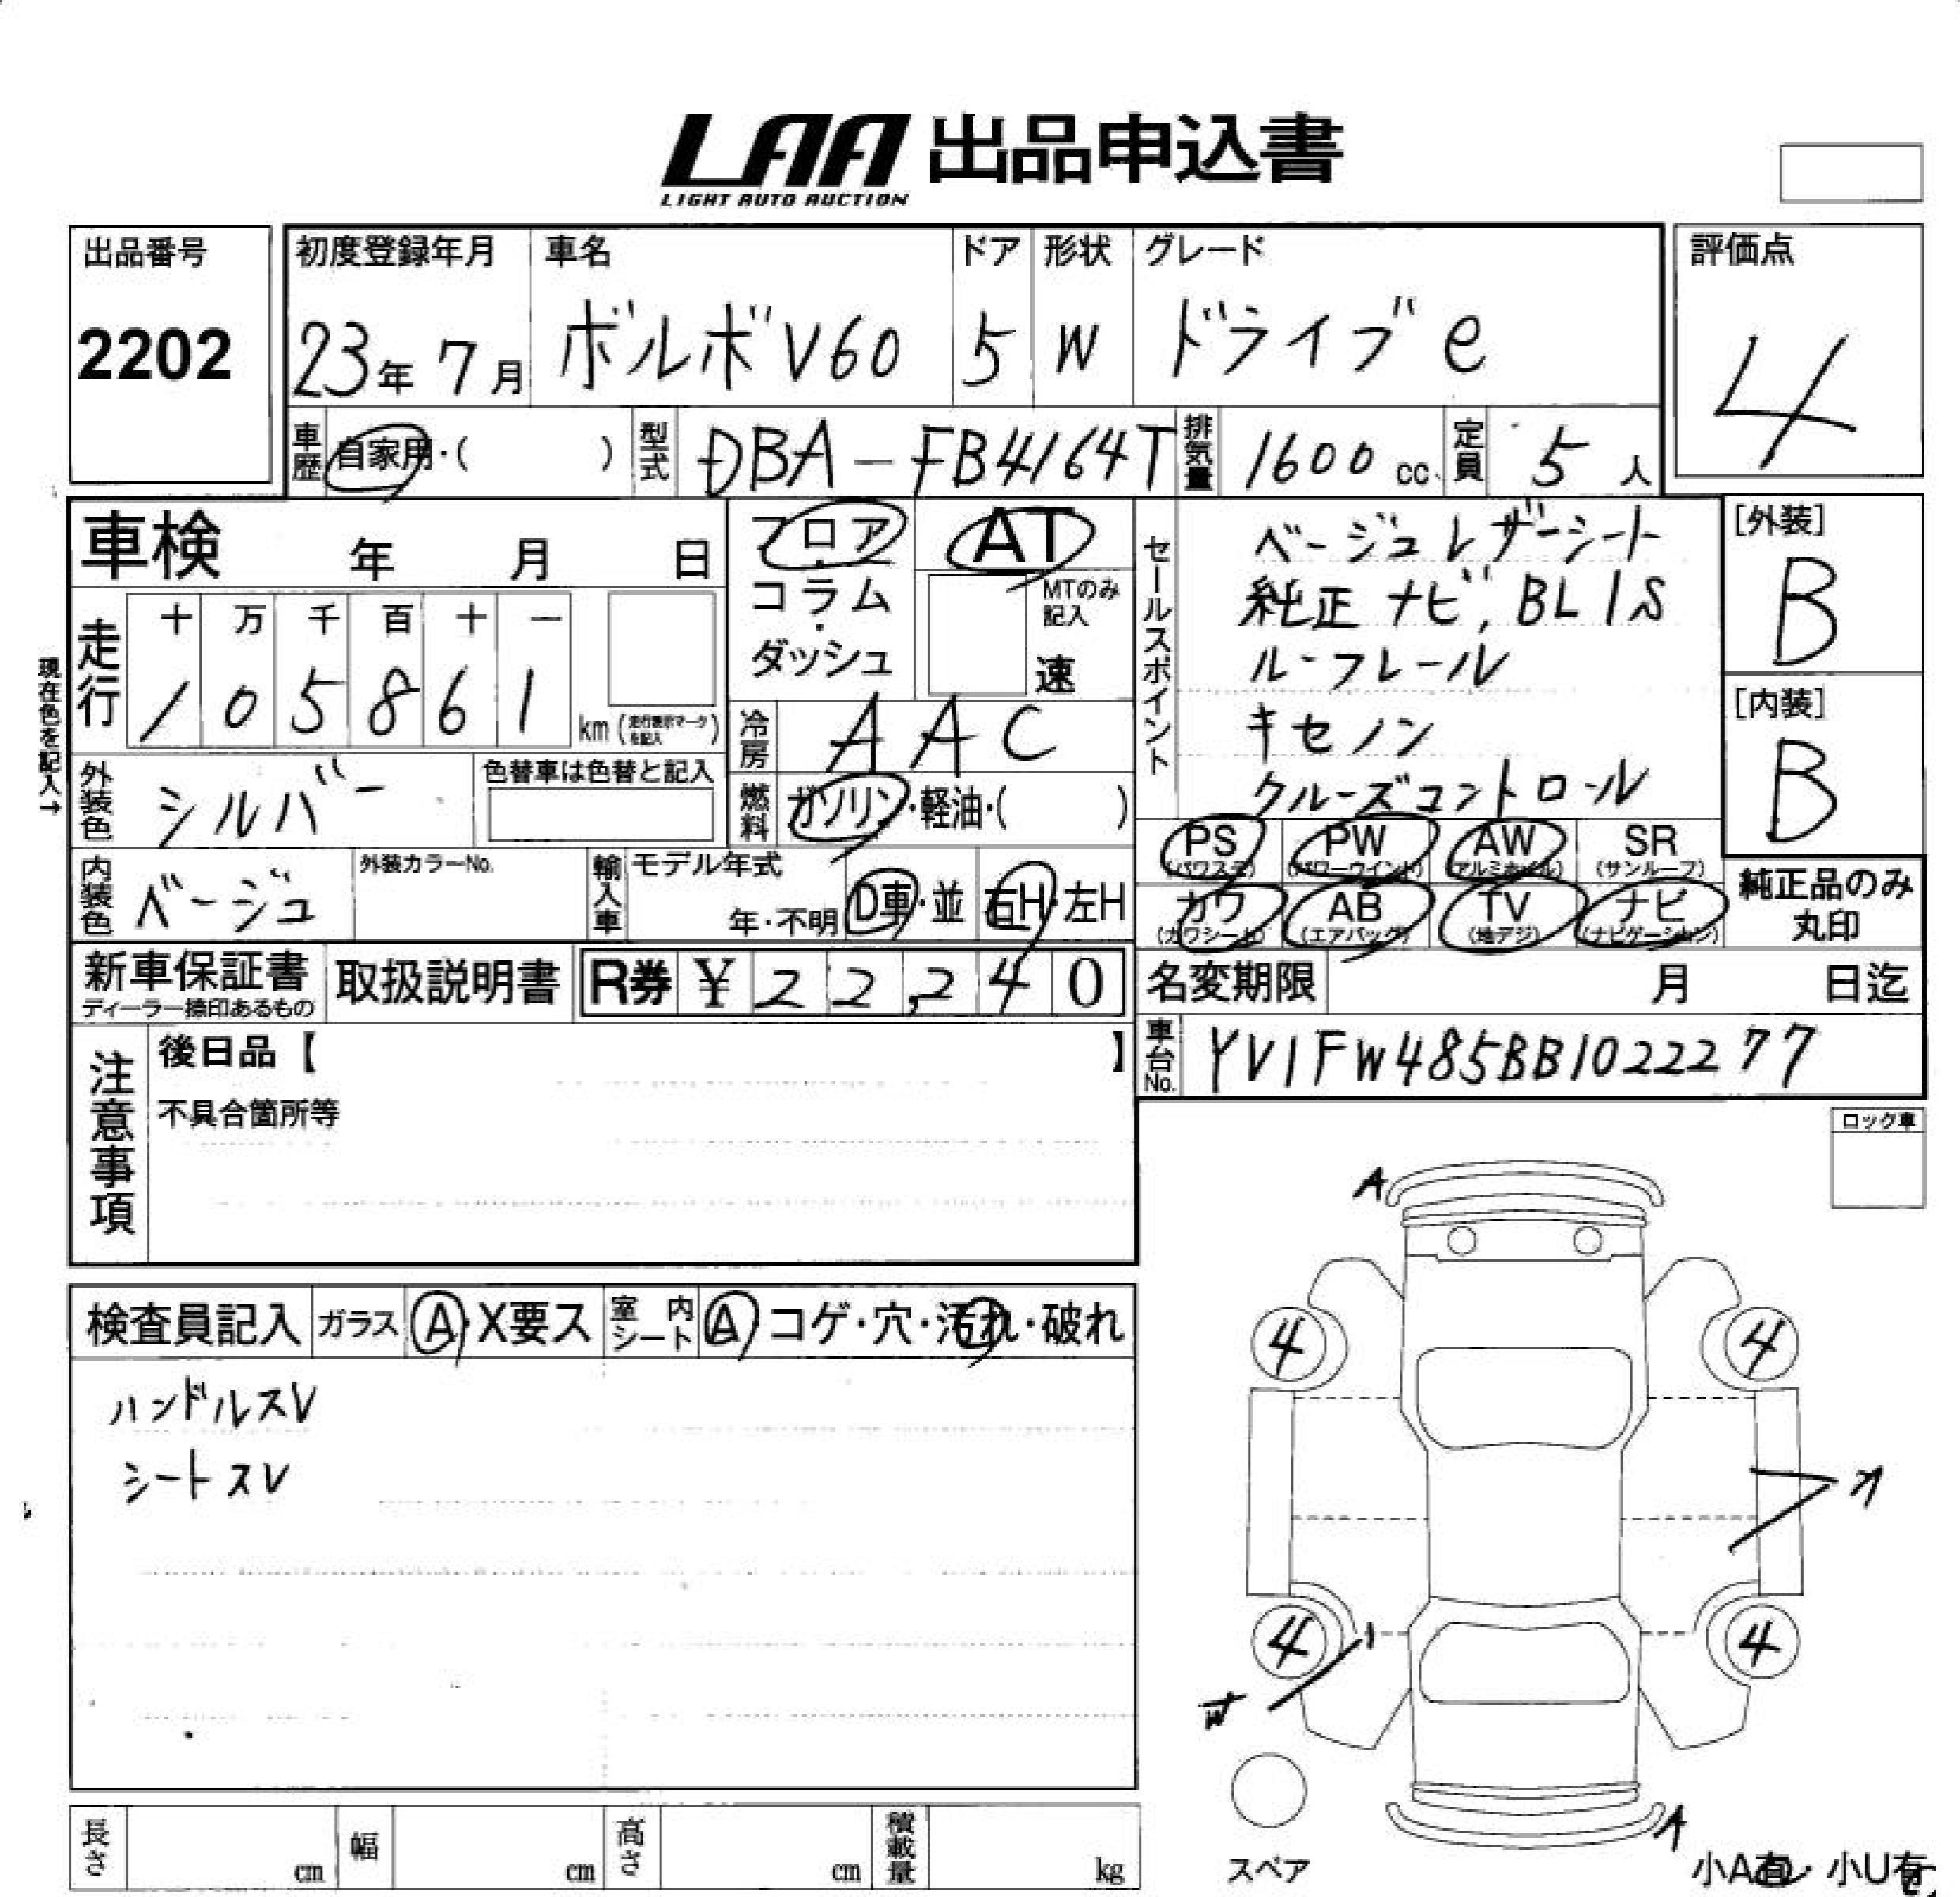 LAA 出品申込書
LIGHT AUTO AUCTION
出品番号
2202
初度登録年月
23年 7月
車名
ボルボ V60
ドア
5
形状
W
グレード
ドライブ e
評価点
4
車歴
自家用・( )
型式
DBA-FB4164T
排気量
1600 cc
定員
5 人
車検 年 月 日
現在色を記入→
走行
十 万 千 百 十 一
1 0 5 8 6 1
km (走行表示マークを記入)
フロア・コラム・ダッシュ
AT
MTのみ記入
速
冷房
AAC
外装色
シルバー
色替車は色替と記入
燃料
ガソリン・軽油・( )
内装色
ベージュ
外装カラーNo.
輸入車
モデル年式
年・不明
D車・並
右H・左H
セールスポイント
ベージュレザーシート
純正ナビ, BLIS
ルーフレール
キセノン
クルーズコントロール
[外装]
B
[内装]
B
PS (パワステ)
PW (パワーウインド)
AW (アルミホイル)
SR (サンルーフ)
カワ (カワシート)
AB (エアバッグ)
TV (地デジ)
ナビ (ナビゲーション)
純正品のみ
丸印
新車保証書
ディーラー捺印あるもの
取扱説明書
R券 ¥ 22,240
名変期限 月 日迄
車台No.
YV1FW485BB1022277
注意事項
後日品【 】
不具合箇所等
ロック車
検査員記入
ガラス A・X要ス
室内シート A コゲ・穴・汚れ・破れ
ハンドルスレ
シートスレ
A
4
4
4
4
A
スペア
小A有・小U有
長さ cm
幅 cm
高さ cm
積載量 kg